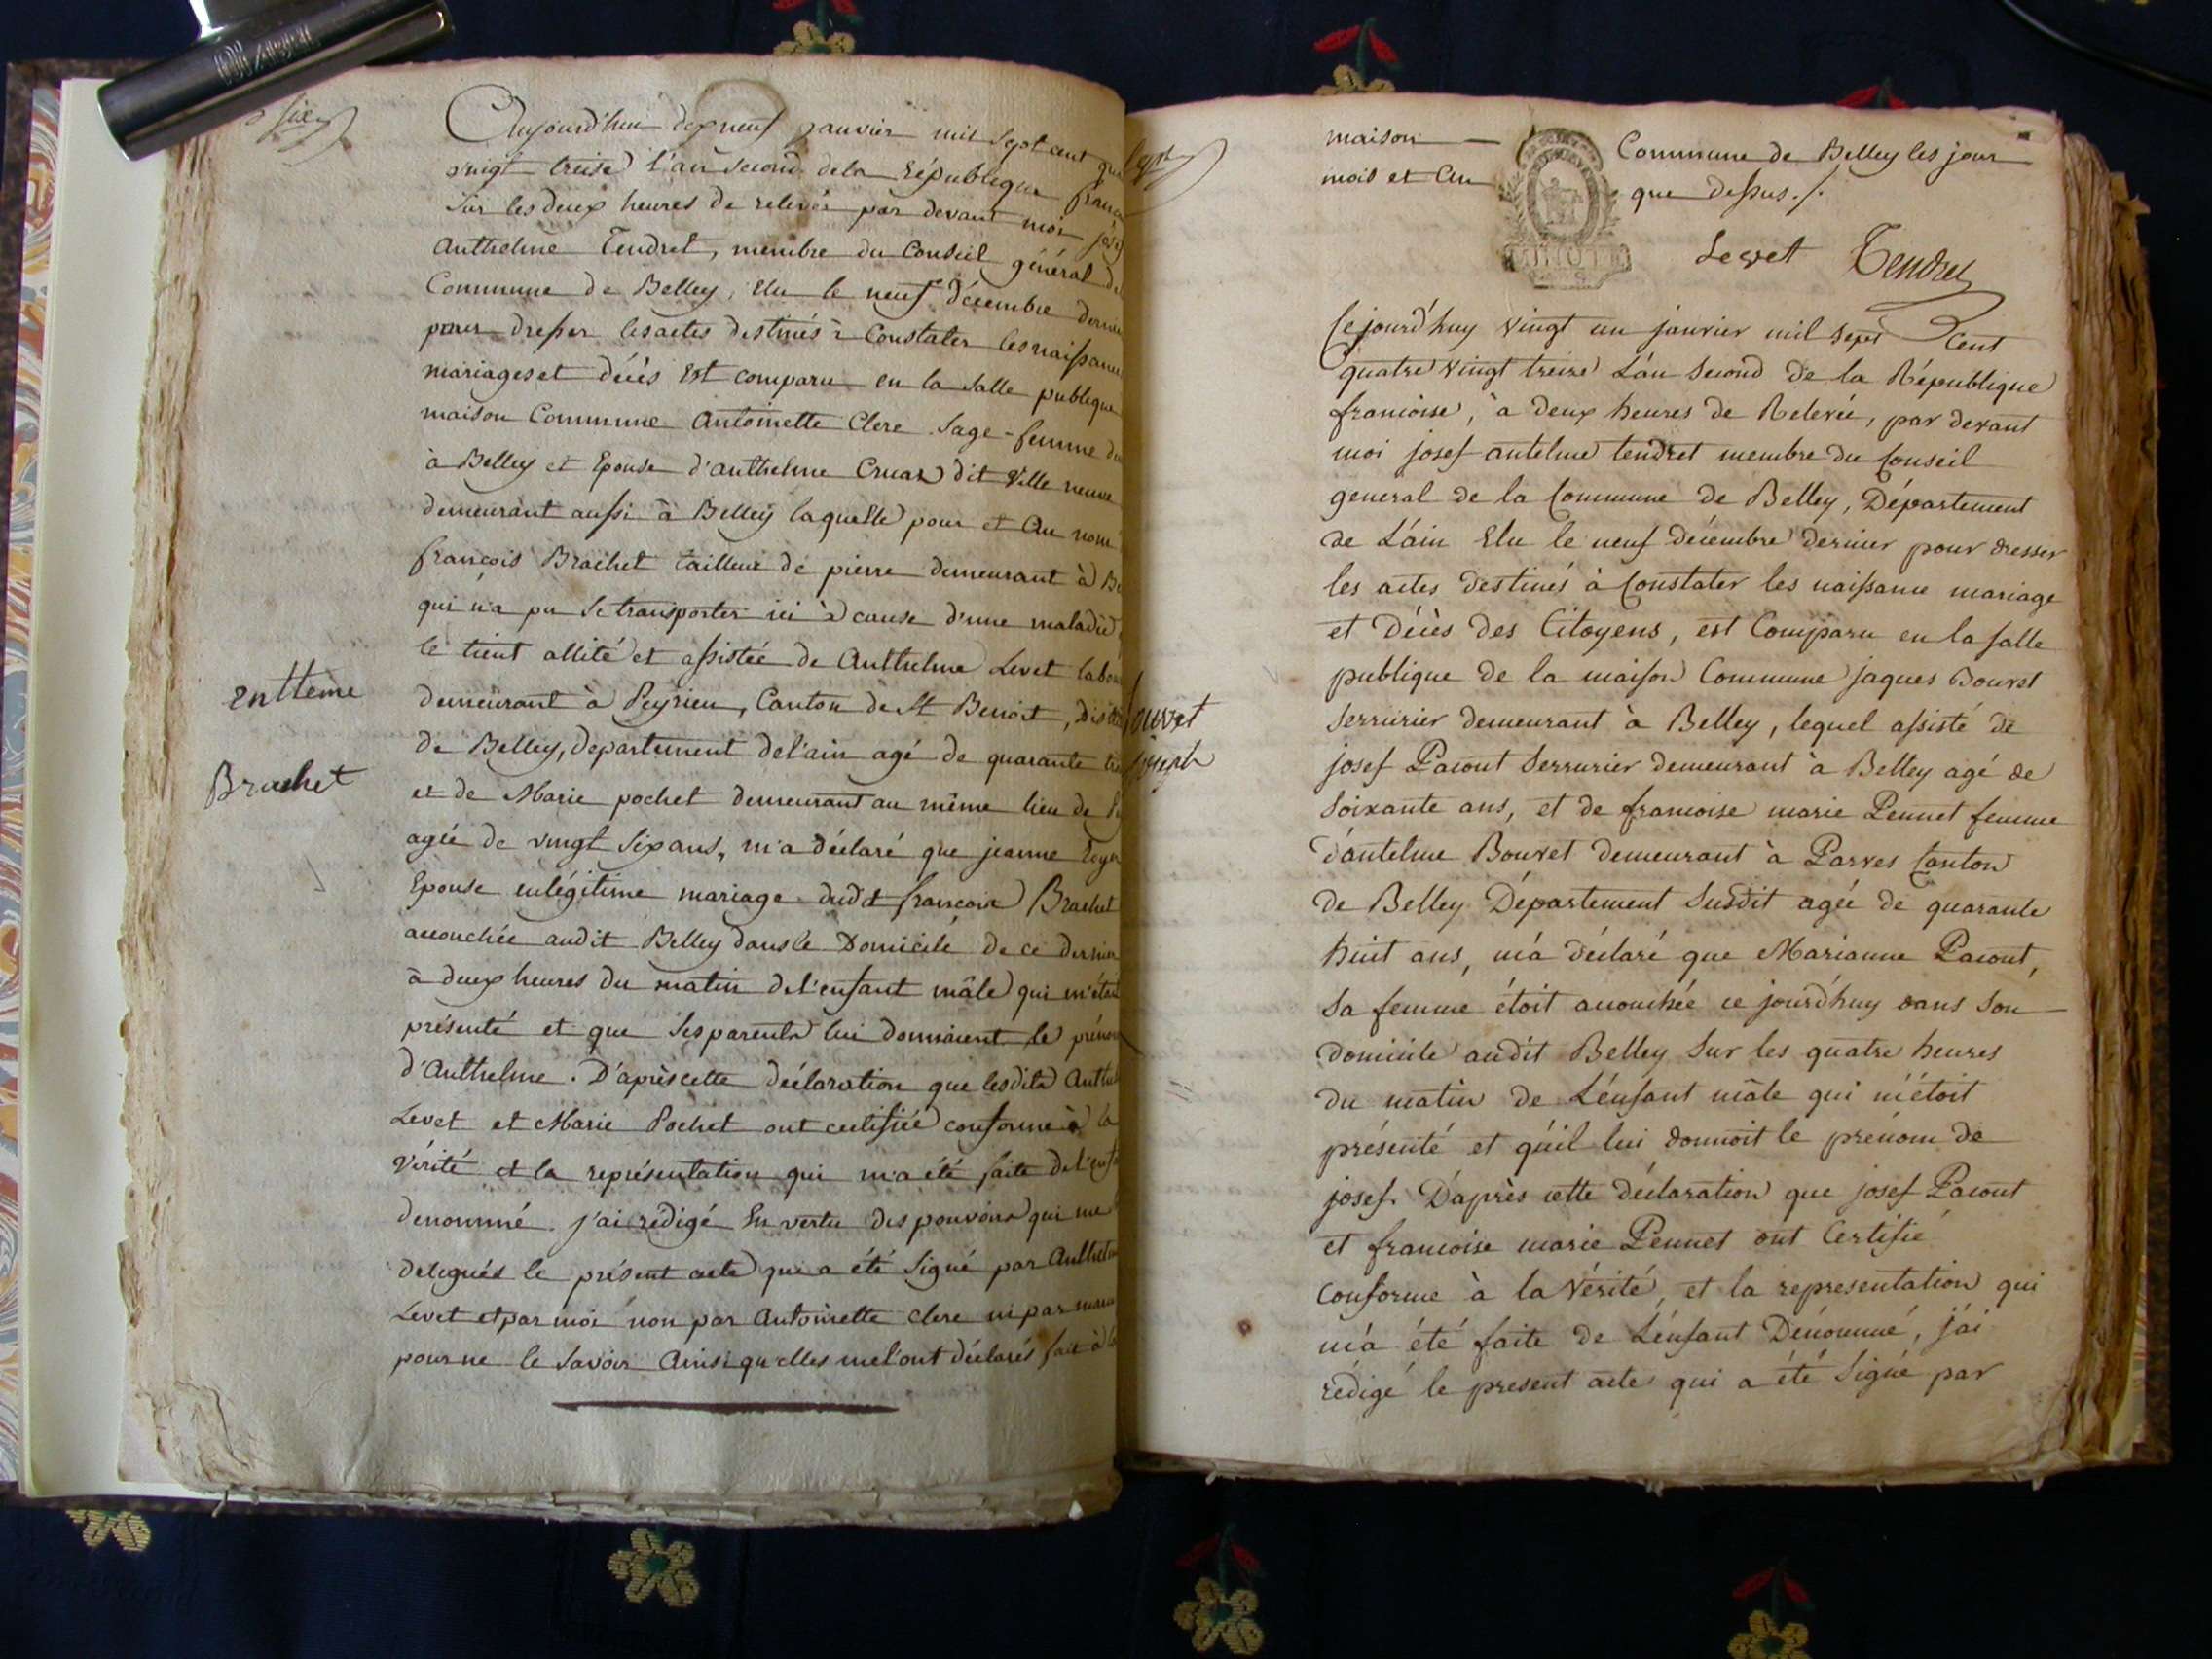 six
Aujourd'hui dix neuf janvier mil sept cent
vingt treise l'an second de la République
Sur les deux heures de relevée par devant moi
Anthelme Tendret, membre du Conseil général de
Commune de Belley, Elu le neuf décembre dernier
pour dresser les actes destinés à Constater les naissance
mariages et décès Est comparu en la Salle publique
maison Commune Antoinette Clerc Sage-femme
à Belley et Epouse d'anthelme Cruaz dit Ville neuve
demeurant aussi à Belley laquelle pour et Au nom
françois Brachet tailleur de pierre demeurant à
qui n'a pu Se transporter ici à cause d'une maladie
le tient allité et assistée de Anthelme Levet
demeurant à Peyrieu, Canton de St Benoit,
de Belley, departement de l'ain agé de quarante
et de Marie pochet demeurant au même lieu de
agée de vingt Six ans, m'a déclaré que jeanne
Epouse en légitime mariage dudit françois Brachet
accouchée audit Belley dans le Domicile de ce dernier
à deux heures du matin de l'enfant mâle qui m'étoit
présenté et que Ses parents lui donnaient le prénom
d'Anthelme. D'après cette déclaration que lesdits
Levet et Marie Pochet ont certifiée conforme à la
Vérité et la représentation qui m'a été faite de
denommé. j'ai redigé En vertu des pouvoirs qui me
delegués le présent acte qui a été Signé par Anthelme
Levet et par moi non par Antoinette Clerc ni par
pour ne le Savoir Ainsi qu'elles me l'ont déclarés fait à
enttème
Brachet
Sept
maison — Commune de Belley les jour
mois et An que dessus./.
Levet Tendret
Cejourd'huy vingt un janvier mil sept Cent
quatre vingt treize L'an Second de la République
francoise, à deux heures de Relevée, par devant
moi josef antelme tendret membre du Conseil
general de la Commune de Belley, Département
de L'ain Elu le neuf décembre dernier pour dresser
les actes destinés à Constater les naissance mariage
et Décès des Citoyens, est Comparu en la salle
publique de la maison Commune jaques Bouvet
Serrurier demeurant à Belley, lequel assisté de
josef Pacout Serrurier demeurant à Belley agé de
Soixante ans, et de francoise marie Pennet femme
d'antelme Bouvet demeurant à Parves Canton
de Belley Département Susdit agée de quarante
huit ans, m'a déclaré que Marianne Pacout,
Sa femme étoit accouchée ce jourd'huy dans Son
domicile audit Belley Sur les quatre heures
du matin de L'enfant mâle qui m'étoit
présenté et qu'il lui donnoit le prenom de
josef. D'après cette déclaration que josef Pacout
et francoise marie Pennet ont Certifié
Conforme à la Vérité, et la representation qui
m'a été faite de L'enfant Dénommé, j'ai
rédigé le present acte qui a été Signé par
Bouvet
joseph